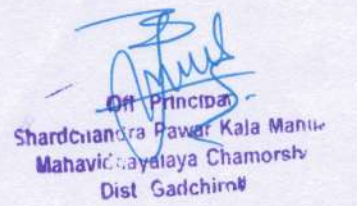 Off Principal
Shardchandra Pawar Kala Mahila
Mahavidyalaya Chamorshi
Dist Gadchiroli